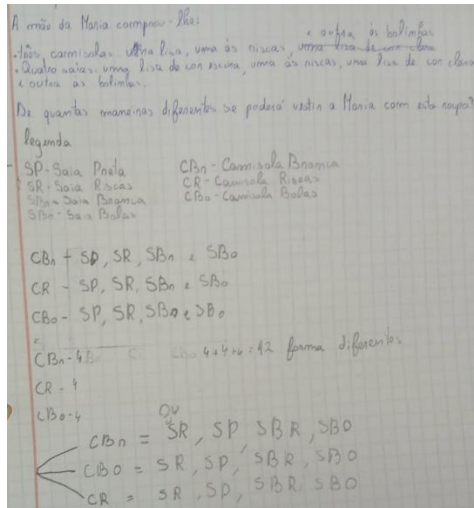 A mãe da Maria comprou-lhe:
- três camisolas uma lisa, uma às riscas, e outra às bolinhas
- Quatro saias: uma lisa de cor escura, uma às riscas, uma lisa de cor clara
e outra às bolinhas.
De quantas maneiras diferentes se poderá vestir a Maria com esta roupa?
legenda
SP - Saia Preta CBn - Camisola Branca
SR - Saia Riscas CR - Camisola Riscas
SBn - Saia Branca CBo - Camisola Bolas
SBo - Saia Bolas
CBn - SP, SR, SBn e SBo
CR - SP, SR, SBn e SBo
CBo - SP, SR, SBn e SBo
CBn - 4 4+4+4=12 forma diferentes
CR - 4
CBo - 4
Ou
CBn = SR, SP, SBR, SBO
CBO = SR, SP, SBR, SBO
CR = SR, SP, SBR, SBO